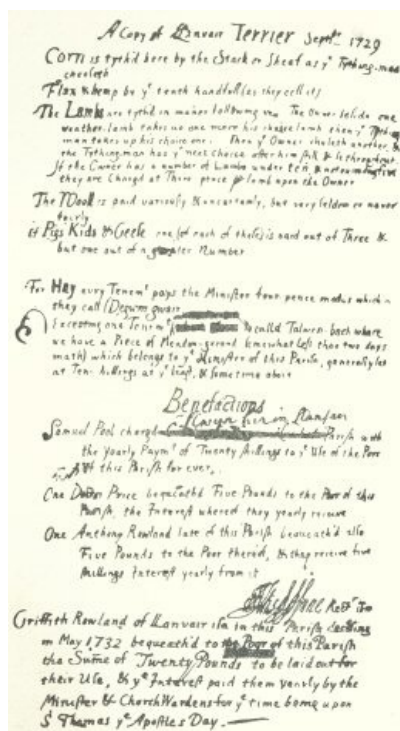 A Copy of Llanvair Terrier Septr. 1729
Corn is tyth'd here by the Stack or Sheaf as ye Tything-man
chooseth
Flax & hemp by ye tenth handfull (as they call it)
The Lambs are tyth'd in maner following viz The Owner
weather-lamb takes up one more his lamb then ye Tything
man takes up his choice one. Then ye Owner chuseth another, &
the Tythingman has ye next Choice after him still & so throughout.
If the Owner has a number of Lambs under ten, & not
they are Charg'd at Three pence pr lamb upon the Owner
The Wooll is paid variously & uncertainly, but very seldom or never
fairly
of Pigs Kids & Geese one (of each of these) is paid out of Three &
but one out of a greater Number
For Hay every Tenemt pays the Minister four pence modus which
they call (Degwm gwair
Excepting one Tenemt called Talwrn-bach where
we have a Piece of Meadow-ground (somewhat less than two days
math) which belongs to ye Minister of this Parish, generally let
at Ten shillings at ye least, & sometime above
Benefactions
Samuel Pool charg'd Parish with
the yearly Paymt of Twenty Shillings to ye Use of the Poor
of this Parish for ever.
One Price bequeath'd Five Pounds to the Poor of this
Parish, the Interest whereof they yearly receive
One Anthony Rowland late of this Parish bequeath'd also
Five Pounds to the Poor thereof, & they receive five
shillings Interest yearly from it
Rectr
Griffith Rowland of Llanvair in this Parish
on May 1732 bequeath'd to the Poor of this Parish
the Sume of Twenty Pounds to be laid out for
their Use, & ye Interest paid them yearly by the
Minister & Church Wardens for ye time being upon
St Thomas ye Apostles Day.